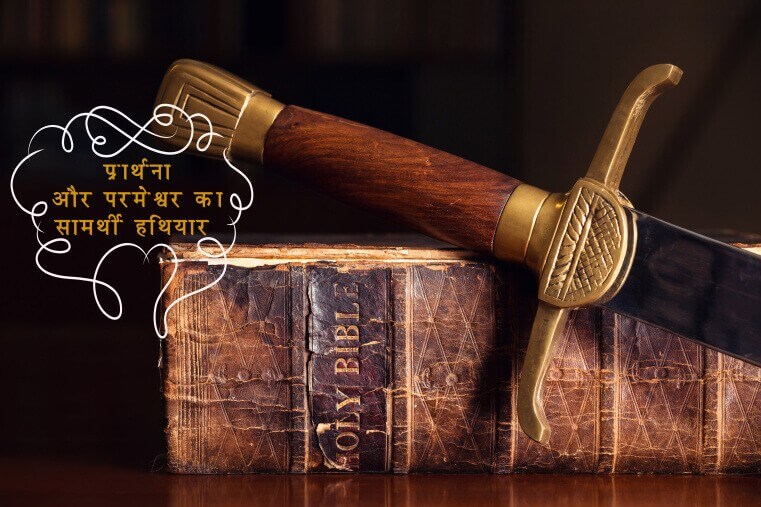 प्रार्थना
और परमेश्वर का
सामर्थी हथियार
HOLY BIBLE